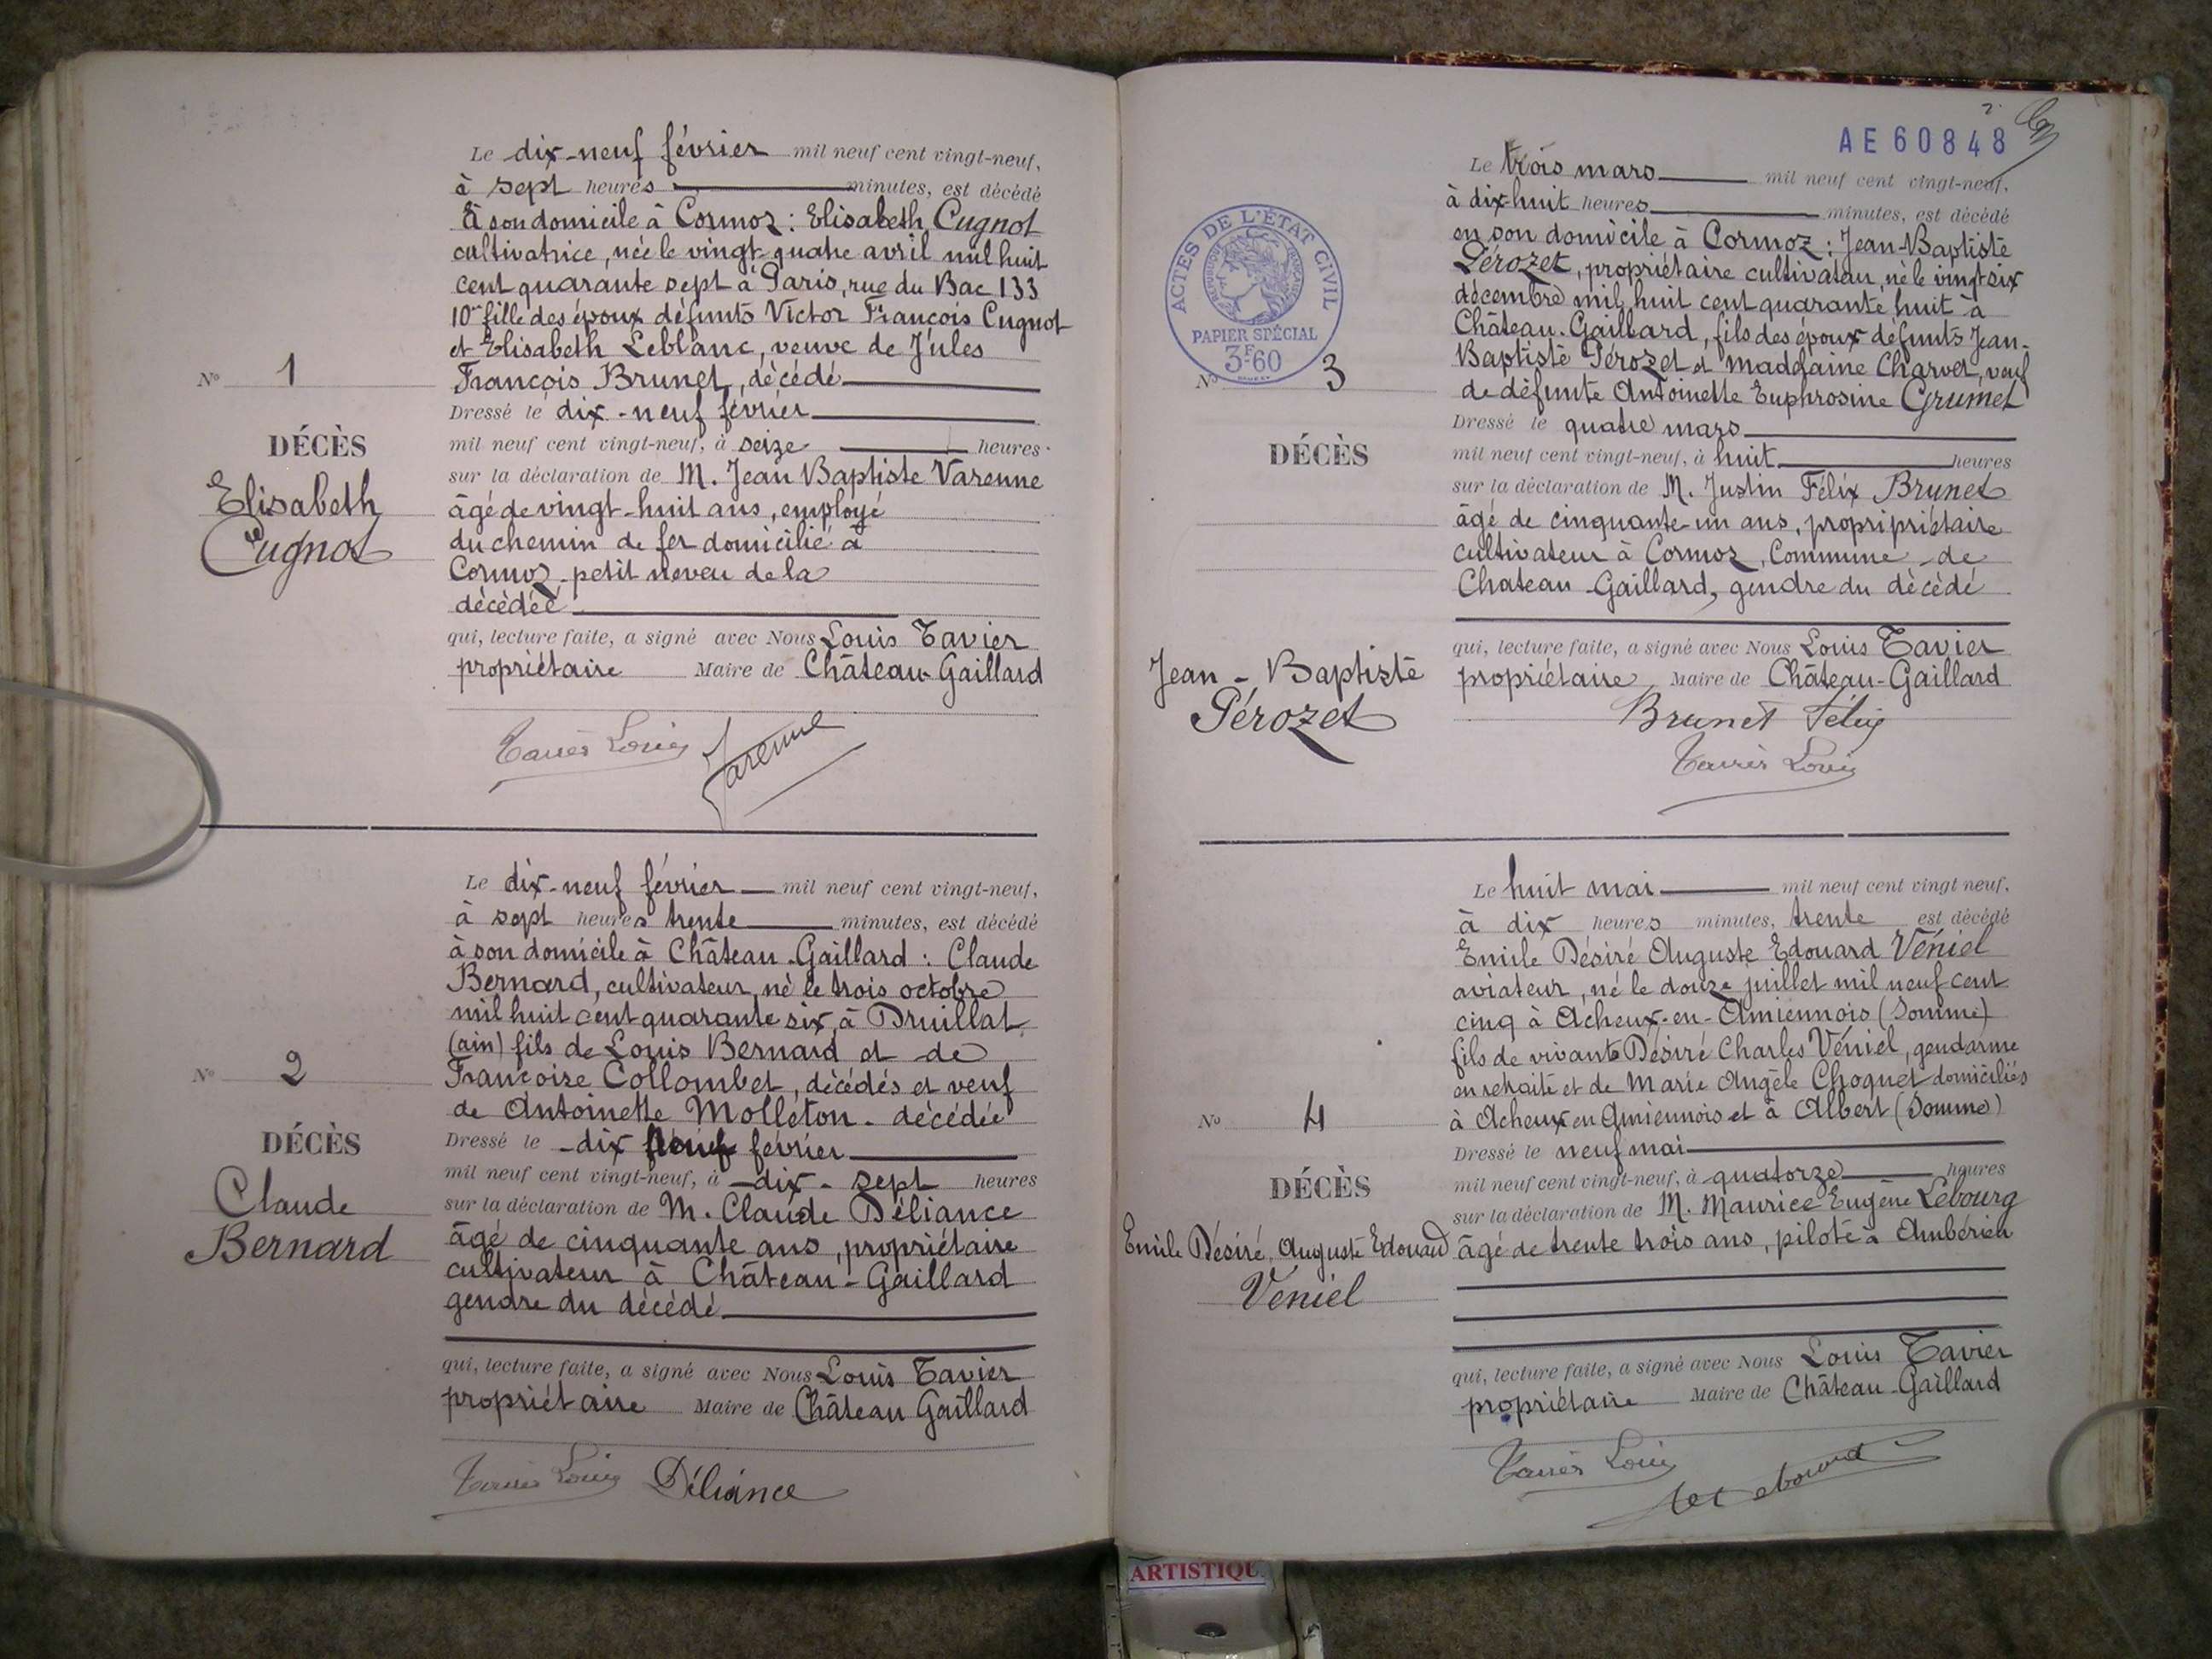 Le dix-neuf février mil neuf cent vingt-neuf,
à sept heures minutes, est décédé
à son domicile à Cormoz : Elisabeth Cugnot
cultivatrice, née le vingt-quatre avril mil huit
cent quarante sept à Paris, rue du Bac 133
10e fille des époux défunts Victor François Cugnot
et Elisabeth Leblanc, veuve de Jules
François Brunet, décédé
Dressé le dix-neuf février
mil neuf cent vingt-neuf, à seize heures
sur la déclaration de M. Jean Baptiste Varenne
âgé de vingt-huit ans, employé
du chemin de fer domicilié à
Cormoz petit neveu de la
décédée
qui, lecture faite, a signé avec Nous Louis Tavier
propriétaire Maire de Château-Gaillard
Tavier Louis Varenne
No 1
DÉCÈS
Elisabeth
Cugnot
Le dix-neuf février mil neuf cent vingt-neuf,
à sept heures trente minutes, est décédé
à son domicile à Château-Gaillard : Claude
Bernard, cultivateur, né le trois octobre
mil huit cent quarante six, à Druillat
(ain) fils de Louis Bernard et de
Françoise Collombet, décédés et veuf
de Antoinette Molleton. décédée
Dressé le dix neuf février
mil neuf cent vingt-neuf, à dix-sept heures
sur la déclaration de M. Claude Déliance
âgé de cinquante ans, propriétaire
cultivateur à Château-Gaillard
gendre du décédé
qui, lecture faite, a signé avec Nous Louis Tavier
propriétaire Maire de Château Gaillard
Tavier Louis Déliance
No 2
DÉCÈS
Claude
Bernard
2
AE 60848
Le trois mars mil neuf cent vingt-neuf,
à dix-huit heures minutes, est décédé
en son domicile à Cormoz : Jean-Baptiste
Pérozet, propriétaire cultivateur, né le vingt six
décembre mil huit cent quarante huit à
Château-Gaillard, fils des époux défunts Jean-
Baptiste Pérozet et Maddaine Charvet, veuf
de défunte Antoinette Euphrosine Grumet
Dressé le quatre mars
mil neuf cent vingt-neuf, à huit heures
sur la déclaration de M. Justin Félix Brunet
âgé de cinquante-un ans, propripriétaire
cultivateur à Cormoz, Commune de
Chateau-Gaillard, gendre du décédé
qui, lecture faite, a signé avec Nous Louis Tavier
propriétaire Maire de Château-Gaillard
Brunet Félix
Tavier Louis
ACTES DE L'ÉTAT CIVIL
RÉPUBLIQUE FRANÇAISE
PAPIER SPÉCIAL
3F60
No 3
DÉCÈS
Jean-Baptiste
Pérozet
Le huit mai mil neuf cent vingt neuf,
à dix heures minutes, trente est décédé
Emile Désiré Auguste Edouard Véniel
aviateur, né le douze juillet mil neuf cent
cinq à Acheux-en-Amiennois (Somme)
fils de vivants Désiré Charles Véniel, gendarme
en retraite et de Marie Angèle Choquet domiciliés
à Acheux en Amiennois et à Albert (Somme)
Dressé le neuf mai
mil neuf cent vingt-neuf, à quatorze heures
sur la déclaration de M. Maurice Eugène Lebourg
âgé de trente trois ans, pilote à Ambérieu
qui, lecture faite, a signé avec Nous Louis Tavier
propriétaire Maire de Château-Gaillard
Tavier Louis
No 4
DÉCÈS
Emile Désiré, Auguste Edouard
Véniel
ARTISTIQU